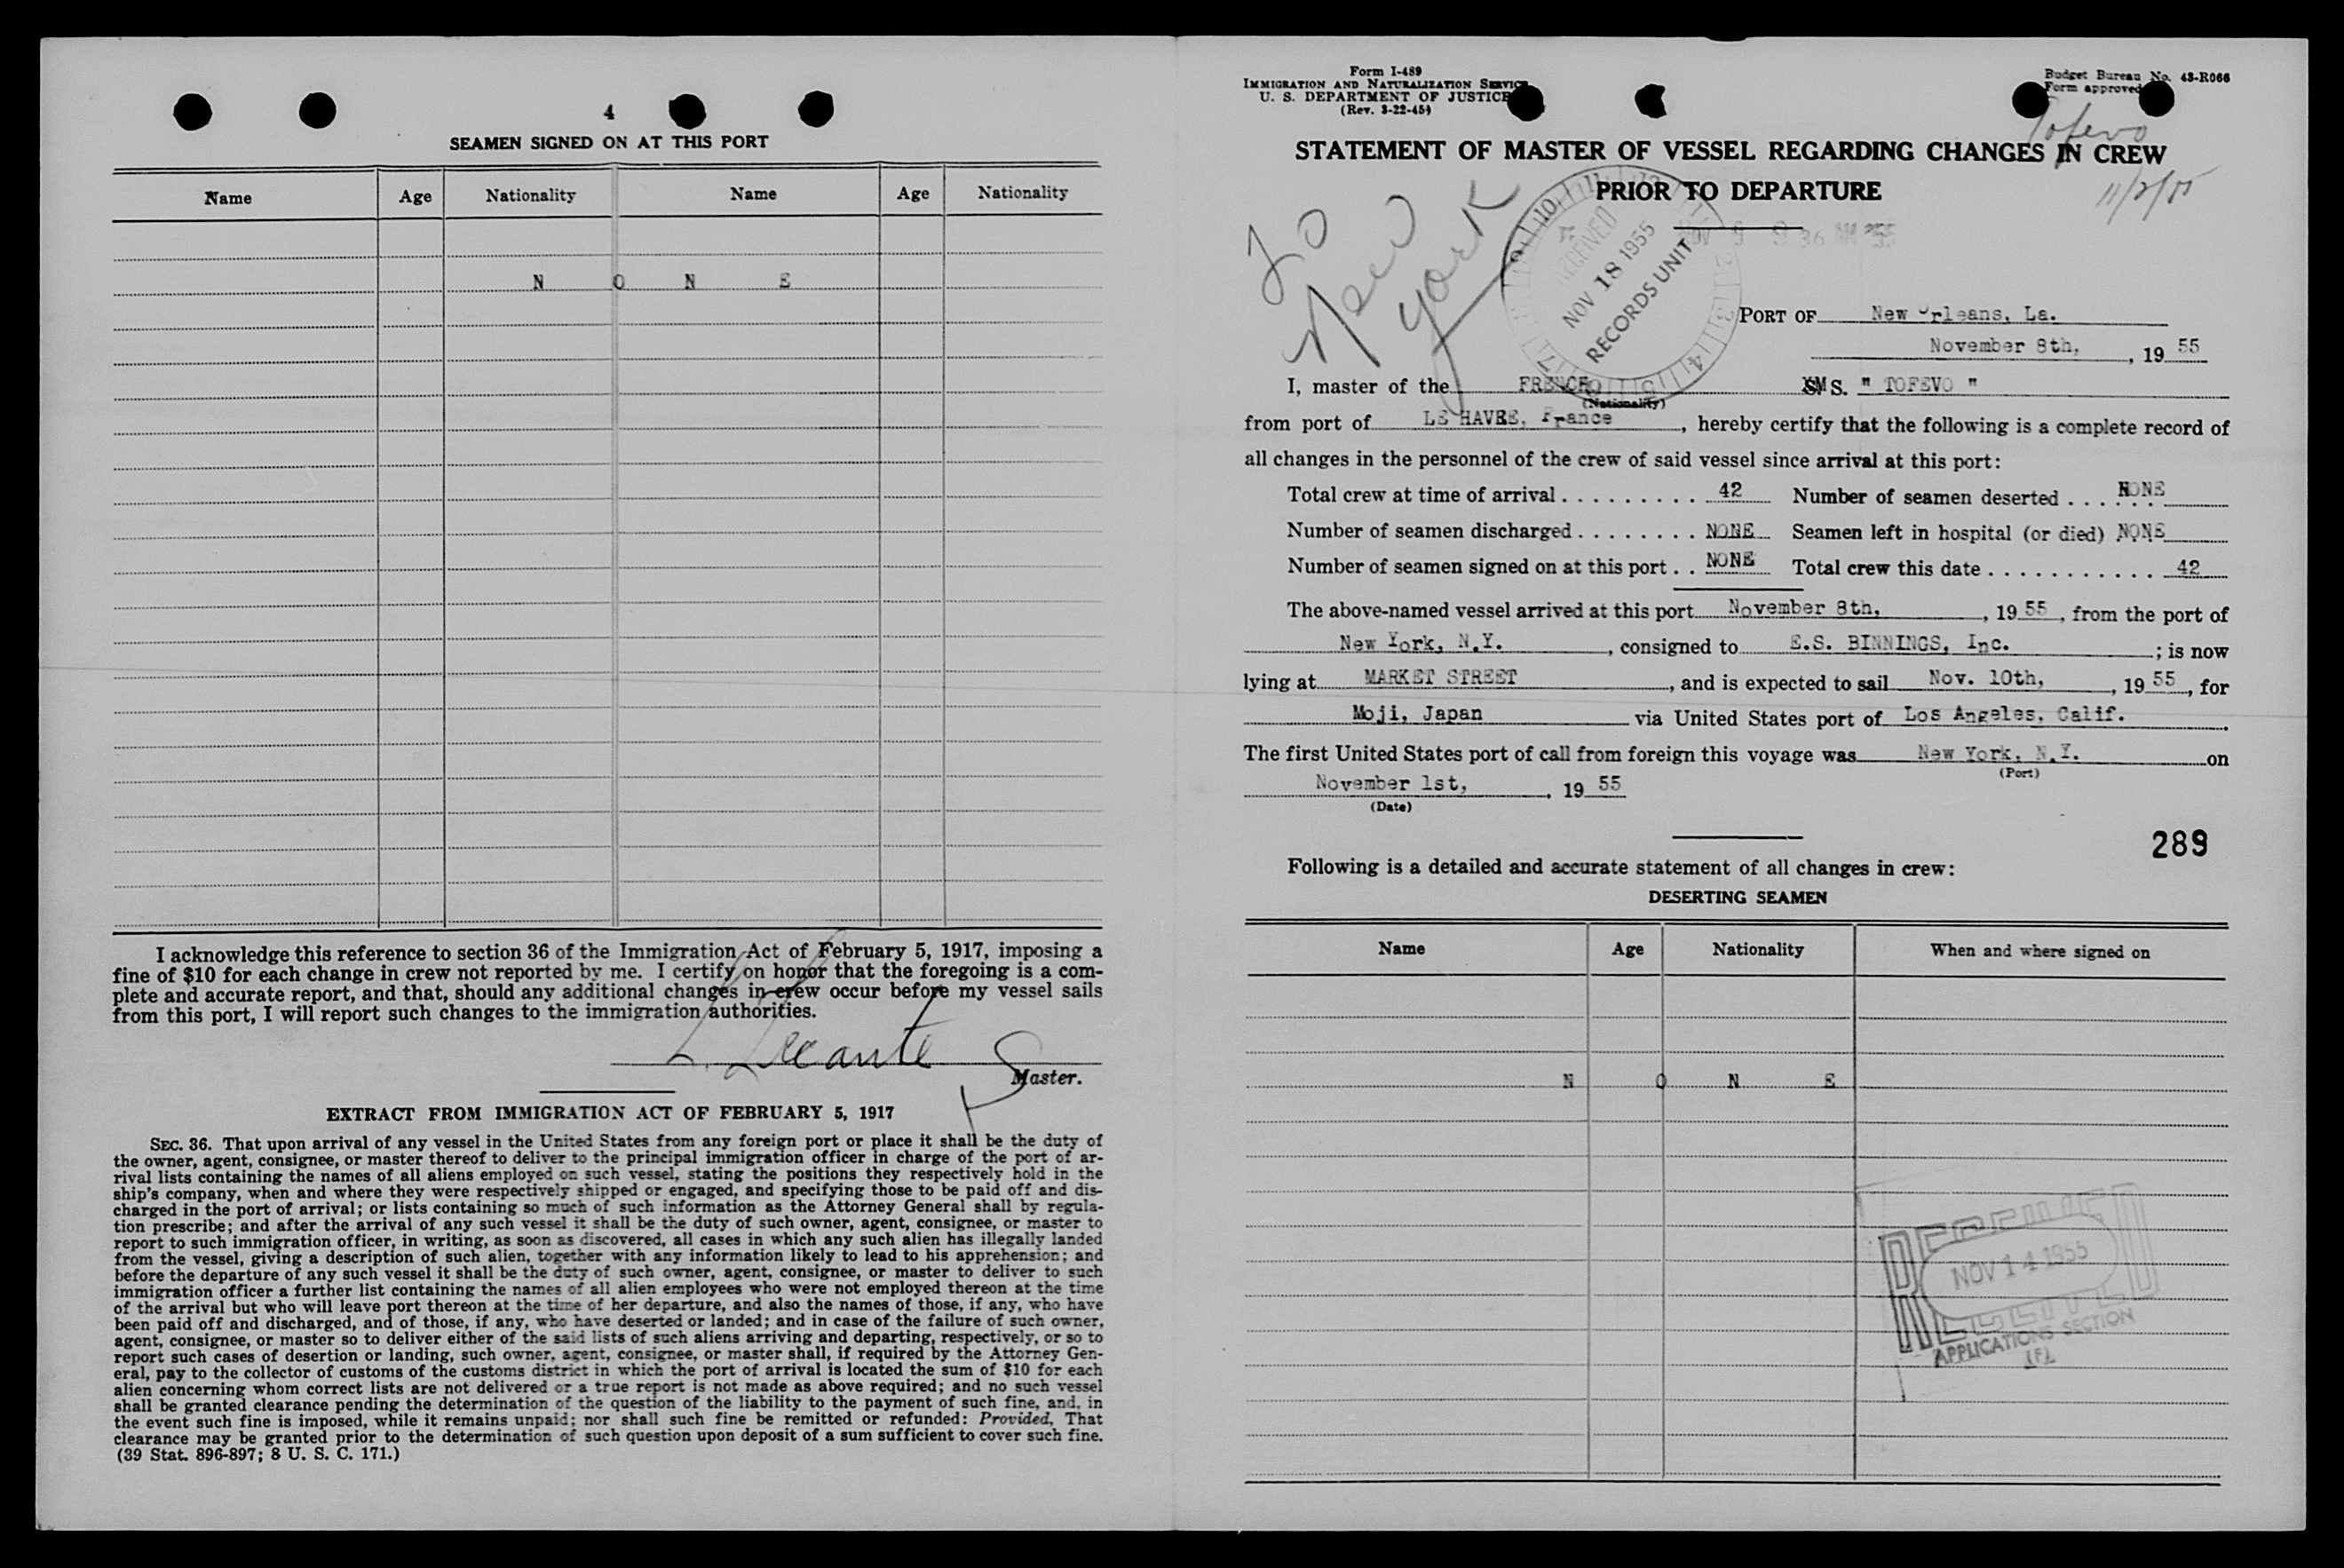 4
SEAMEN SIGNED ON AT THIS PORT
Name Age Nationality Name Age Nationality
N O N E
I acknowledge this reference to section 36 of the Immigration Act of February 5, 1917, imposing a
fine of $10 for each change in crew not reported by me. I certify on honor that the foregoing is a com-
plete and accurate report, and that, should any additional changes in crew occur before my vessel sails
from this port, I will report such changes to the immigration authorities.
Master.
EXTRACT FROM IMMIGRATION ACT OF FEBRUARY 5, 1917
SEC. 36. That upon arrival of any vessel in the United States from any foreign port or place it shall be the duty of
the owner, agent, consignee, or master thereof to deliver to the principal immigration officer in charge of the port of ar-
rival lists containing the names of all aliens employed on such vessel, stating the positions they respectively hold in the
ship's company, when and where they were respectively shipped or engaged, and specifying those to be paid off and dis-
charged in the port of arrival; or lists containing so much of such information as the Attorney General shall by regula-
tion prescribe; and after the arrival of any such vessel it shall be the duty of such owner, agent, consignee, or master to
report to such immigration officer, in writing, as soon as discovered, all cases in which any such alien has illegally landed
from the vessel, giving a description of such alien, together with any information likely to lead to his apprehension; and
before the departure of any such vessel it shall be the duty of such owner, agent, consignee, or master to deliver to such
immigration officer a further list containing the names of all alien employees who were not employed thereon at the time
of the arrival but who will leave port thereon at the time of her departure, and also the names of those, if any, who have
been paid off and discharged, and of those, if any, who have deserted or landed; and in case of the failure of such owner,
agent, consignee, or master so to deliver either of the said lists of such aliens arriving and departing, respectively, or so to
report such cases of desertion or landing, such owner, agent, consignee, or master shall, if required by the Attorney Gen-
eral, pay to the collector of customs of the customs district in which the port of arrival is located the sum of $10 for each
alien concerning whom correct lists are not delivered or a true report is not made as above required; and no such vessel
shall be granted clearance pending the determination of the question of the liability to the payment of such fine, and, in
the event such fine is imposed, while it remains unpaid; nor shall such fine be remitted or refunded: Provided, That
clearance may be granted prior to the determination of such question upon deposit of a sum sufficient to cover such fine.
(39 Stat. 896-897; 8 U. S. C. 171.)
Form I-489
IMMIGRATION AND NATURALIZATION SERVICE
U. S. DEPARTMENT OF JUSTICE
(Rev. 3-22-45)
Budget Bureau No. 43-R066
Form approved
Tofevo
STATEMENT OF MASTER OF VESSEL REGARDING CHANGES IN CREW
PRIOR TO DEPARTURE
New York
RECEIVED
NOV 18 1955
RECORDS UNIT
PORT OF New Orleans, La.
November 8th, , 19 55
I, master of the FRENCH M S. " TOFEVO "
(Nationality)
from port of LE HAVRE, France , hereby certify that the following is a complete record of
all changes in the personnel of the crew of said vessel since arrival at this port:
Total crew at time of arrival . . . . . . . . . 42 Number of seamen deserted . . . . . . NONE
Number of seamen discharged . . . . . . . . NONE Seamen left in hospital (or died) NONE
Number of seamen signed on at this port . . NONE Total crew this date . . . . . . . . . . . 42
The above-named vessel arrived at this port November 8th, , 19 55 , from the port of
New York, N.Y. , consigned to E.S. BINNINGS, Inc. ; is now
lying at MARKET STREET , and is expected to sail Nov. 10th, , 19 55 , for
Moji, Japan via United States port of Los Angeles, Calif. .
The first United States port of call from foreign this voyage was New York, N.Y. on
(Port)
November 1st, , 19 55
(Date)
289
Following is a detailed and accurate statement of all changes in crew:
DESERTING SEAMEN
Name Age Nationality When and where signed on
N O N E
RECEIVED
NOV 14 1955
APPLICATIONS SECTION
(F)